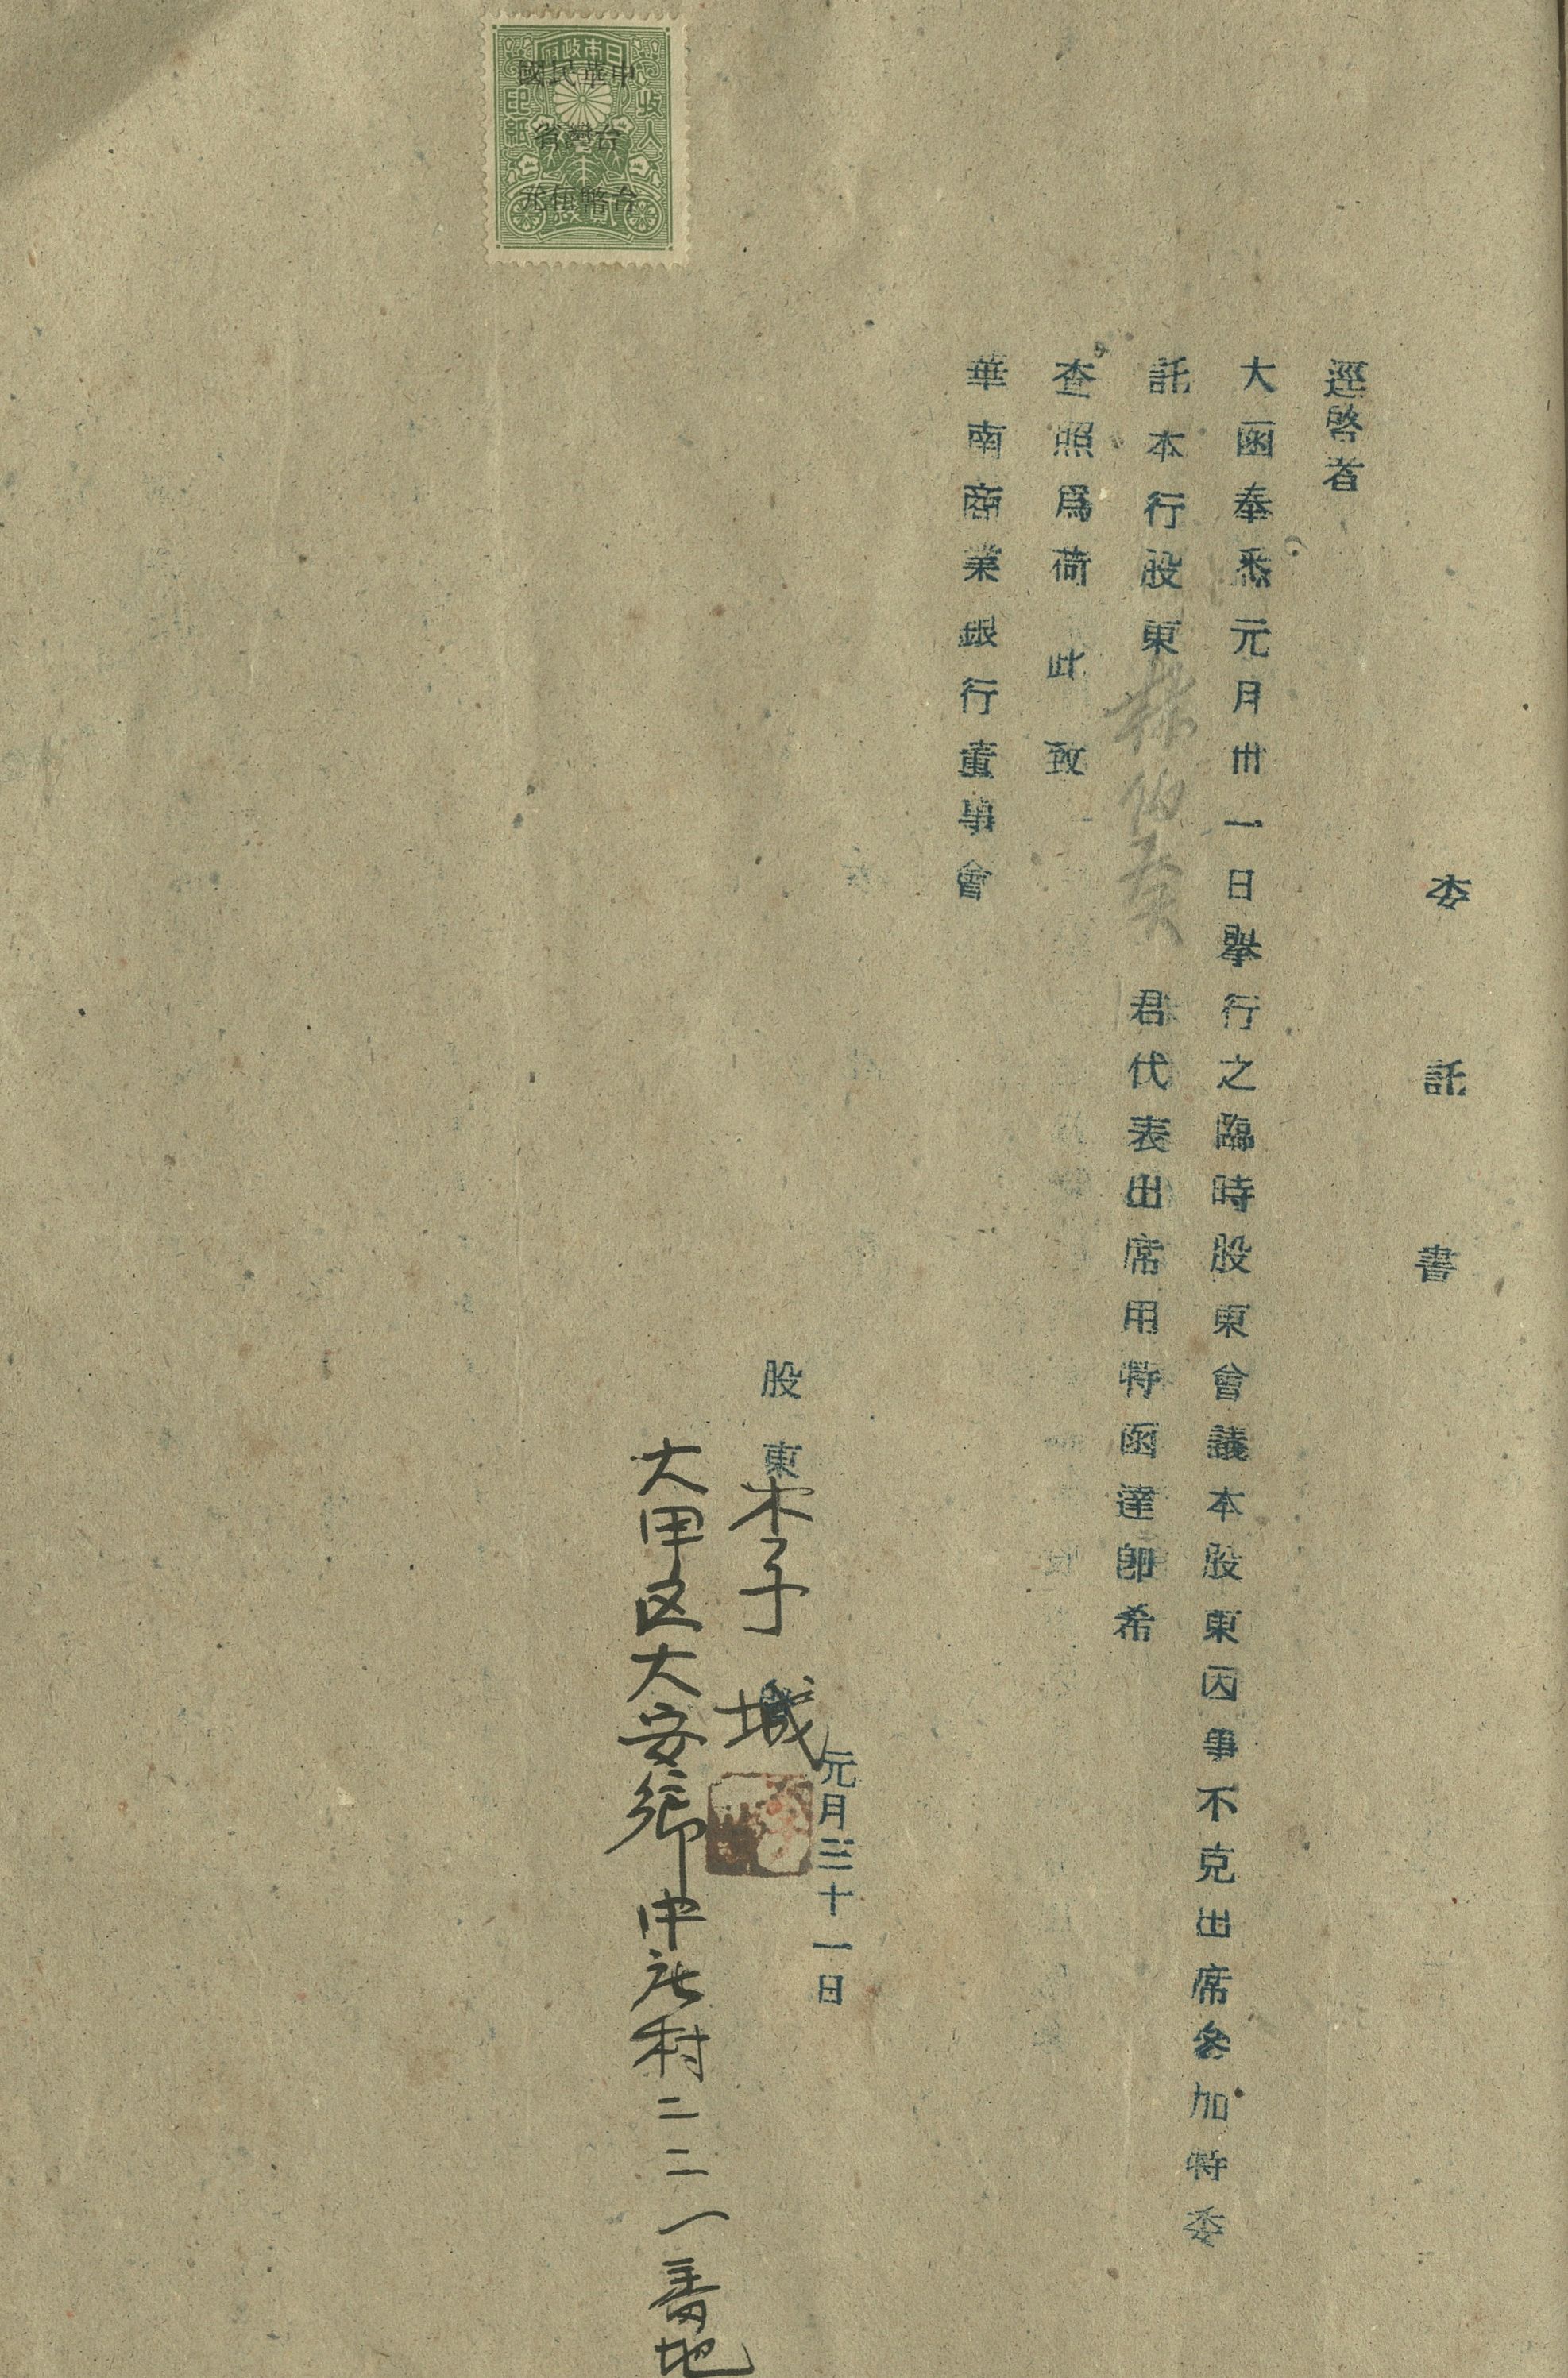 委託書
逕啓者
大函奉悉元月卅一日舉行之臨時股東會議本股東因事不克出席參加特委
託本行股東林伯奏君代表出席用特函達卽希
查照爲荷 此致
華南商業銀行董事會
元月三十一日
股東 李 城
大甲区大安鄉中庄村二二一番地
日本政府
收入
印紙
中華民國
台灣省
台幣伍元